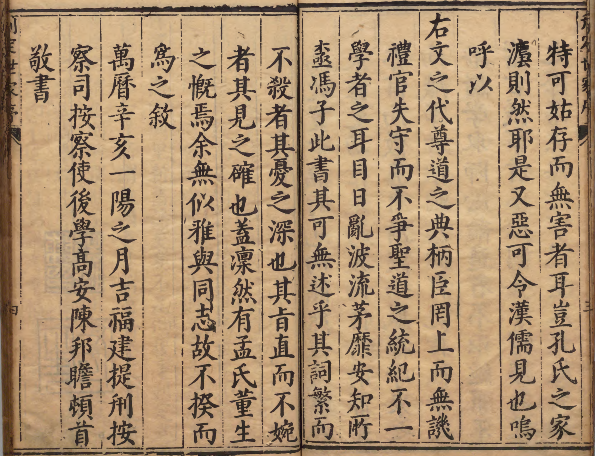 特可姑存而無害者耳豈孔氏之家
瀆則然耶是又惡可令漢儒見也嗚
呼以
右文之代尊道之典柄臣罔上而無譏
禮官失守而不爭聖道之統紀不一
學者之耳目日亂波流茅靡安知所
馮子此書其可無述乎其詞繁而
不殺者其憂之深也其旨直而不婉
者其見之確也蓋凜然有孟氏董生
之慨焉余無似雅與同志故不揆而
爲之敘
萬曆辛亥一陽之月吉福建提刑按
察司按察使後學高安陳邦瞻頓首
敬書